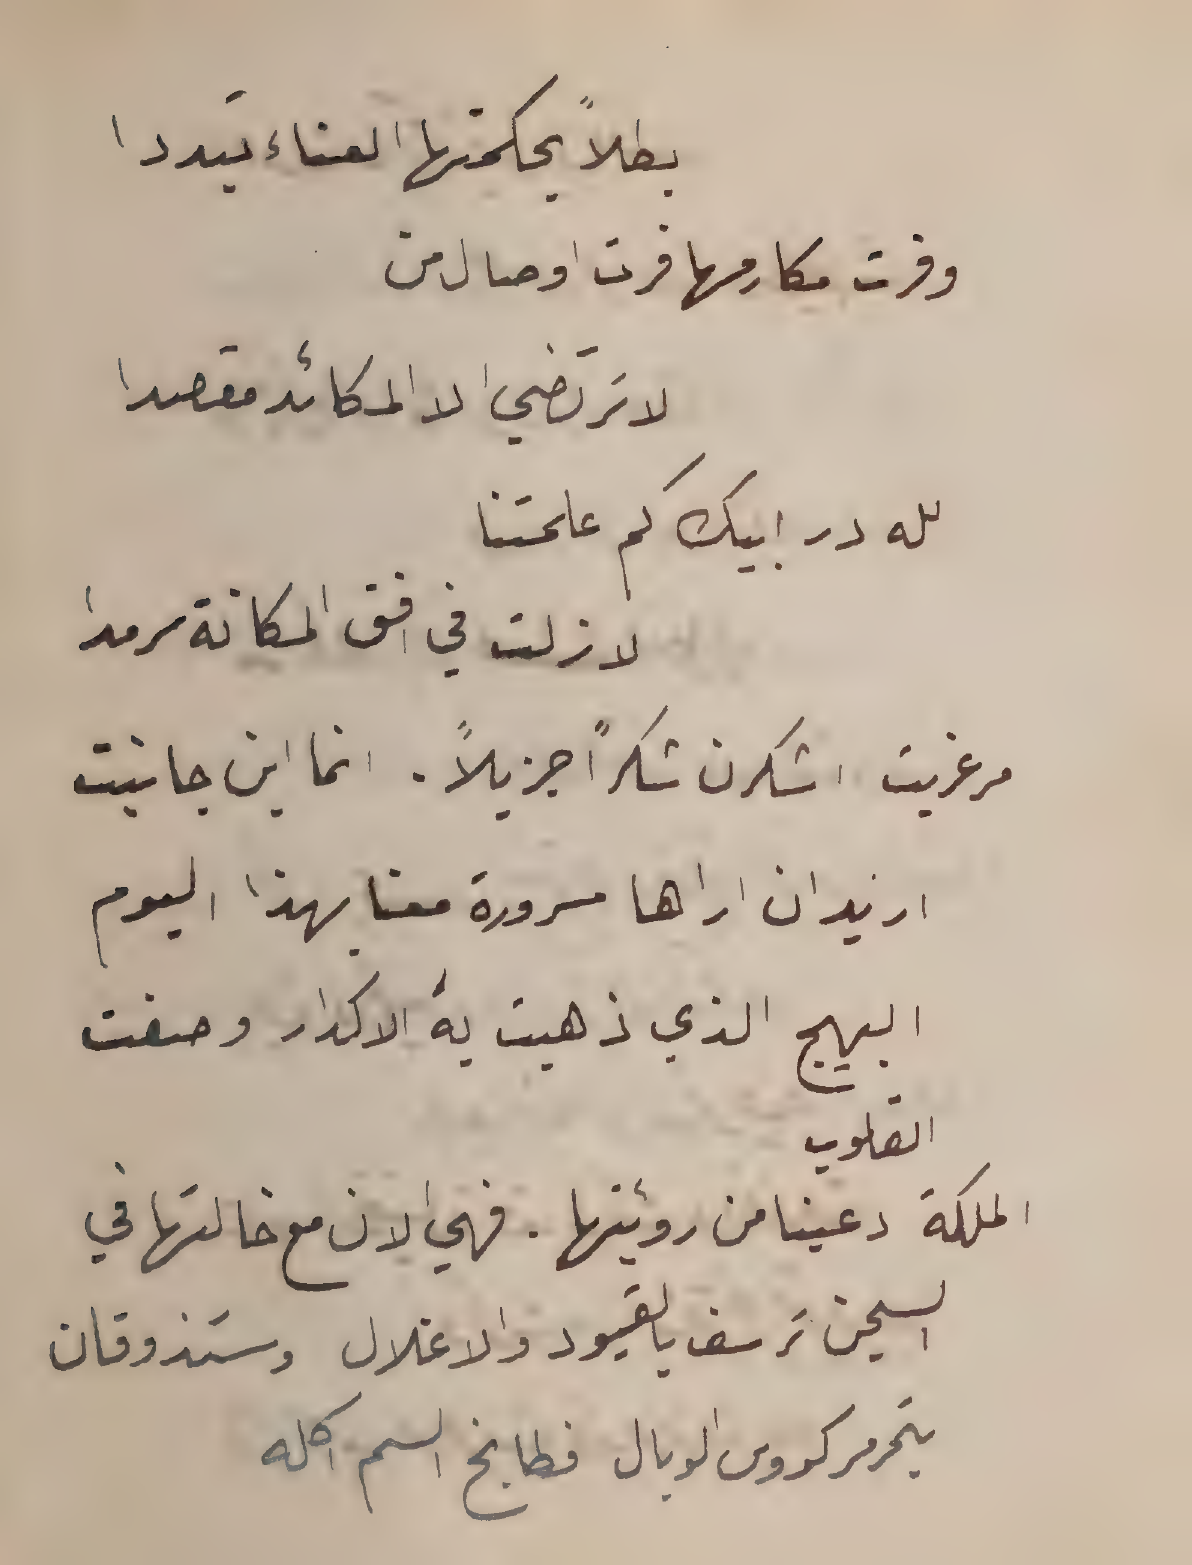 بطلاً بحكمتها العناء تبددا
وفرت مكارمها فرت اوصال من
لا ترتضي الا المكائد مقصدا
لله در ابيك كم علمتنا
لا زلت في افق المكانة سرمدا
مرغريت اشكرن شكراً جزيلاً. انما اين جانيت
اريد ان اراها مسرورة معنا بهذا اليوم
البهيج الذي ذهبت به الاكدار وصفت
القلوب
الملكة دعينا من روئيتها. فهي الان مع خالتها في
السجن ترسف بالقيود والاغلال وستذوقان
بتمرمر كووس الوبال فطابخ السم اكله